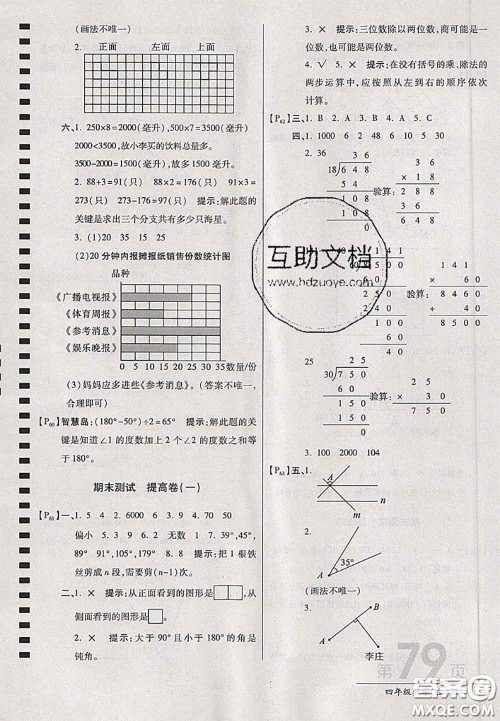 (画法不唯一)
2. 正面 左面 上面
六、1. 250×8=2000(毫升) 500×7=3500(毫升)
2000<3500,故小李买的饮料总量多。
3500-2000=1500(毫升) 故多 1500 毫升
2. 88+3=91(只) 88×2=176(只) 91×3=
273(只) 273-176=97(只) 提示:解此题的
关键是求出三个分支共有多少只海星。
3. (1)20 35
(2)20 分钟内报摊报纸销售份数统计图
品种
《广播电视报》
《体育周报》
《参考消息》
《娱乐晚报》
0 5 10 15 20 25 30 35 数量/份
(3)妈妈应多进些《参考消息》。(答案不唯一,
合理即可)
【P60】智慧岛:(180°-50°)÷2=65° 提示:解此题的关
键是知道∠1 的度数加上 2 个∠2 的度数之和等
于 180°。
期末测试 提高卷(一)
【P61】一、1. 5 4 2. 6000 6 3. 9 4. 70 50
偏小 5. 4 6. 5 7. 0 8. 1 9. 39°,45°,
89° 91°,113°,145° 10. 提示:把 1 根铁
丝剪成 n 段,需要剪(n-1)次。
二、1. × 提示:从正面看到的图形是,从
侧面看到的图形是。
2. × 提示:大于 90°且小于 180°的角是
钝角。
3. × 提示:三位数除以两位数,商可能是一
位数,也可能是两位数。
4. √ 5. × 提示:在没有括号的乘、除法的
两步运算中,应按照从左到右的顺序依次
计算。
【P62】三、1. × 2. ② 3. ①
四、1. 1000 6 48 6 10 5 30
2. 36
3 6
18 6 4 8
5 4
1 0 8
1 0 8
0
验算:
3 6
× 1 8
2 8 8
3 6
6 4 8
1 4 1
验算:
25
2 5
30 7 5 0
6 0
1 5 0
1 5 0
0
验算:
3. 100 2000 104
【P63】五、1.
A
n
m
2.
A
35°
(画法不唯一)
3.
A
B
李庄
互助文档
www.hdzuoye.com
第79页
四年级
答案圈
MXQE.COM